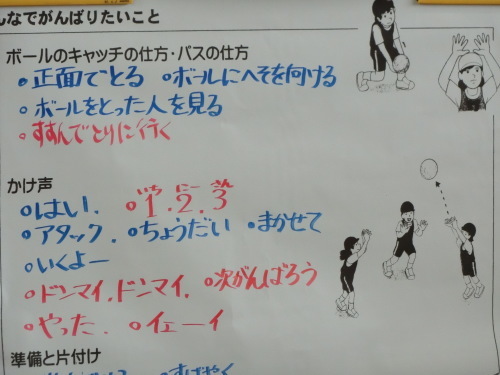 んなでがんばりたいこと
ボールのキャッチの仕方・パスの仕方
○正面でとる ○ボールにへそを向ける
○ボールをとった人を見る
○すすんでとりに行く
かけ声
○はい. ○1.2.3
○アタック. ○ちょうだい ○まかせて
○いくよー
○ドンマイ,ドンマイ. ○次がんばろう
○やった. ○イェーイ
準備と片付け